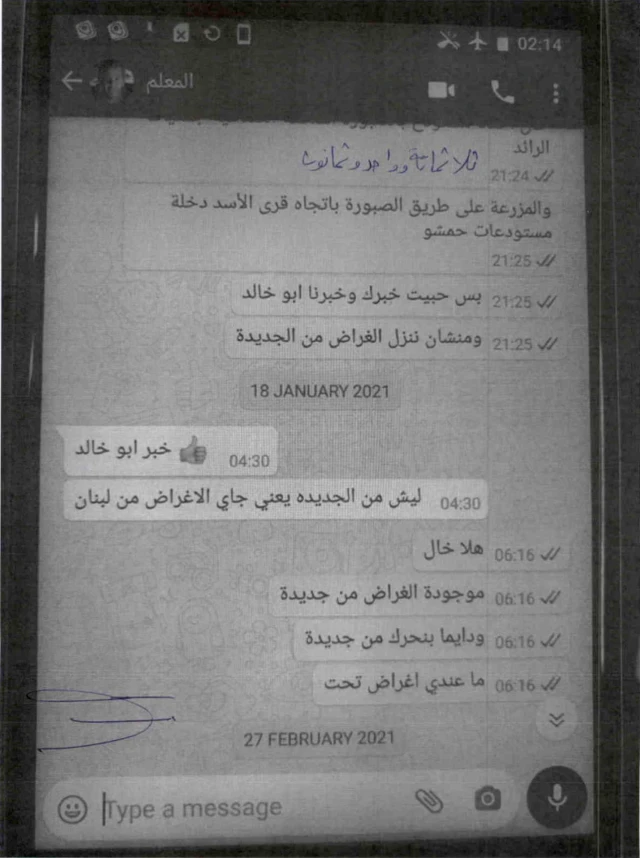 02:14
المعلم
الرائد
21:24
ثلاثمائة وواحد وثمانون
والمزرعة على طريق الصبورة باتجاه قرى الأسد دخلة
مستودعات حمشو
21:25
بس حبيت خبرك وخبرنا ابو خالد
21:25
ومنشان ننزل الغراض من الجديدة
21:25
18 JANUARY 2021
👍 خبر ابو خالد
04:30
ليش من الجديده يعني جاي الاغراض من لبنان
04:30
هلا خال
06:16
موجودة الغراض من جديدة
06:16
ودايما بنحرك من جديدة
06:16
ما عندي اغراض تحت
06:16
27 FEBRUARY 2021
Type a message